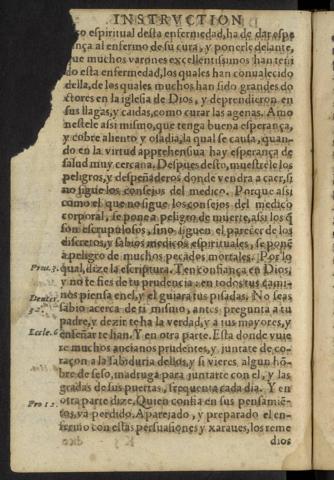 INSTRVCTION
co espiritual desta enfermedad, ha de dar espe
ança al enfermo de su cura, y ponerle delante,
que muchos varones excellentissimos han teni
do esta enfermedad, los quales han conualecido
della, de los quales muchos han sido grandes do
ctores en la iglesia de Dios, y deprendieron en
sus llagas, y caidas, como curar las agenas. Amo
nestele assi mismo, que tenga buena esperança,
y cobre aliento y osadia, la qual se causa, quan-
do en la virtud apprehensiua hay esperança de
salud muy cercana. Despues desto, muestrele los
peligros, y despeñaderos donde vendra a caer, si
no sigue los consejos del medico. Porque assi
como el que no sigue los consejos del medico
corporal, se pone a peligro de muerte, assi los q̃
son escrupulosos, sino siguen el parecer de los
discretos, y sabios medicos espirituales, se ponẽ
a peligro de muchos pecados mortales. Por lo
Prou. 3. qual, dize la escriptura. Ten confiança en Dios,
y no te fies de tu prudencia: en todos tus cami-
nos piensa enel, y el guiara tus pisadas. No seas
Deuter. 32. sabio acerca de ti mismo, antes pregunta a tu
padre, y dezir te ha la verdad, y a tus mayores, y
Eccle. 6 enseñar te han. Y en otra parte. Esta donde vuie
re muchos ancianos prudentes, y juntate de co-
raçon a la sabiduria dellos, y si vieres algun hõ-
bre de seso, madruga para juntarte con el, y las
gradas de sus puertas, frequenta cada dia. Y en
Pro 12. otra parte dize, Quien confia en sus pensamiẽ-
tos, va perdido. Aparejado, y preparado el en-
fermo con estas persuasiones y xaraues, los reme
dios